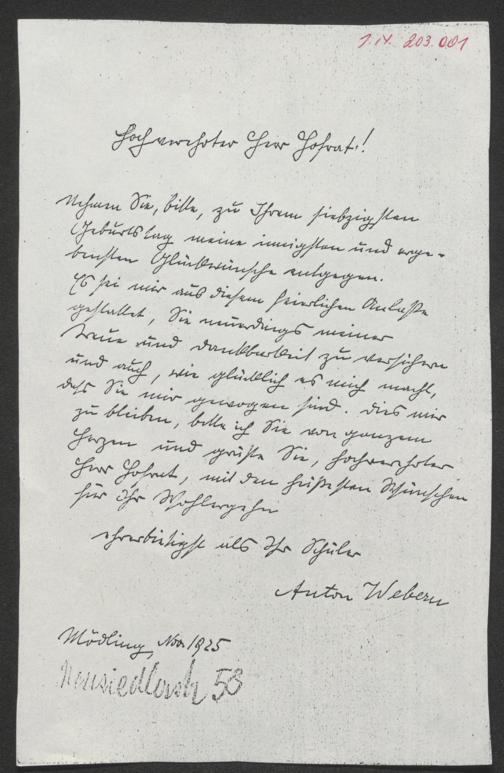 1.N. 203.001
Hochverehrter Herr Hofrat!
Nehmen Sie, bitte, zu Ihrem siebzigsten
Geburtstag meine innigsten und erge-
bensten Glückwünsche entgegen.
Es sei mir aus diesem feierlichen Anlaße
gestattet, Sie neuerdings meiner
Treue und Dankbarkeit zu versichern
und auch, wie glücklich es mich macht,
daß Sie mir gewogen sind. Dies mir
zu bleiben, bitte ich Sie von ganzem
Herzen und grüße Sie, hochverehrter
Herr Hofrat, mit den heißesten Wünschen
für Ihr Wohlergehn
ehrerbietigst als Ihr Schüler
Anton Webern
Mödling, Nov. 1925
Neusiedlerstr 58